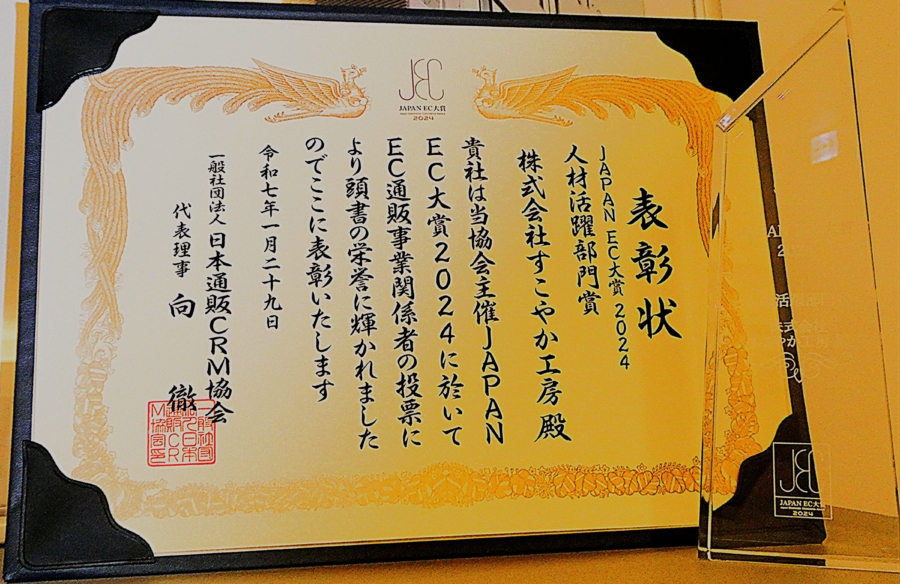 JEC
JAPAN EC大賞
2024
表彰状
JAPAN EC大賞 2024
人材活躍部門賞
株式会社すこやか工房 殿
貴社は当協会主催JAPAN
EC大賞2024に於いて
EC通販事業関係者の投票に
より頭書の栄誉に輝かれました
のでここに表彰いたします
令和七年一月二十九日
一般社団法人 日本通販CRM協会
代表理事 向 徹
JEC
JAPAN EC大賞
2024